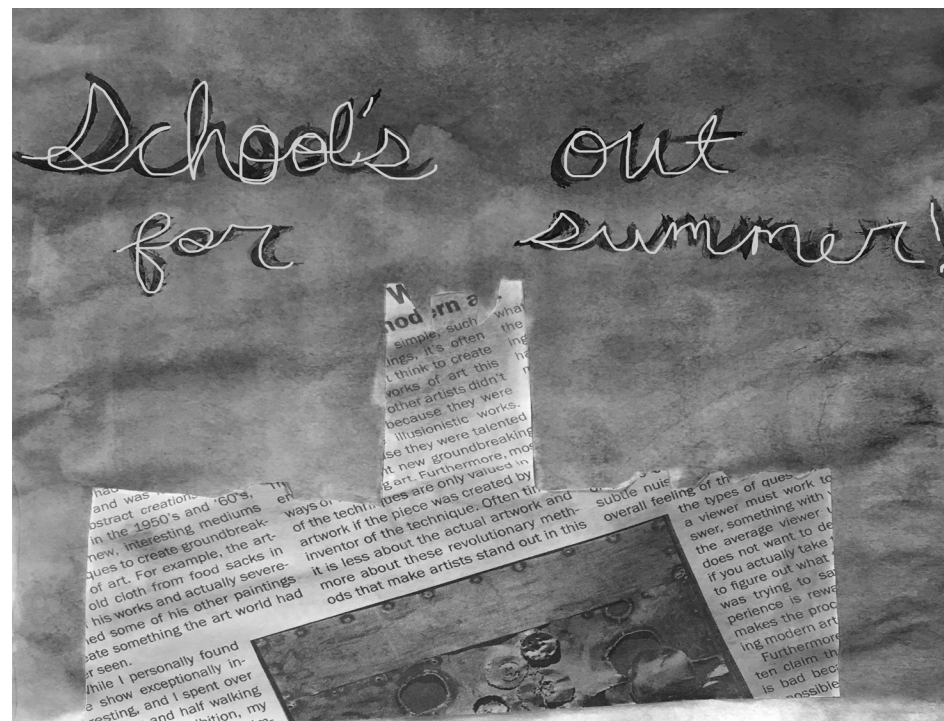 School's out
for summer!
W
modern a
simple, such
ings, it's often
t think to create
works of art this
other artists didn't
because they were
illusionistic works.
se they were talented
nt new groundbreaking
g art. Furthermore, mos
ues are only valued in
had
and was
bstract creations
n the 1950's and '60's,
new, interesting mediums
ques to create groundbreak-
of art. For example, the art-
old cloth from food sacks in
his works and actually severe-
ned some of his other paintings
eate something the art world had
er seen.
While I personally found
e show exceptionally in-
resting, and I spent over
and half walking
ibition, my
ways of
of the techni
artwork if the piece was created by
inventor of the technique. Often ti
it is less about the actual artwork and
more about these revolutionary meth-
ods that make artists stand out in this
subtle nuis
overall feeling of th
what
the
ing
ha
the types of ques
a viewer must work to
swer, something with
the average viewer
does not want to de
if you actually take
to figure out what
was trying to sa
perience is rewa
makes the proc
ing modern art
Furthermore
ten claim th
is bad beca
possible